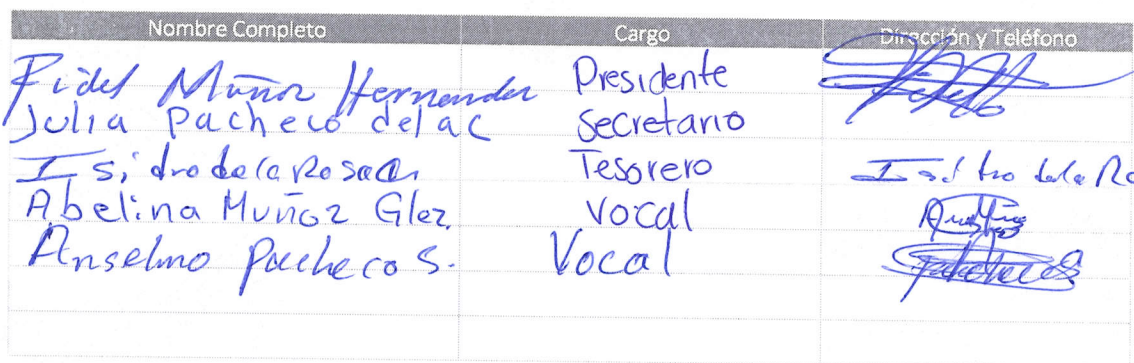 Nombre Completo Cargo Dirección y Teléfono
Fidel Muñoz Hernandez Presidente
Julia Pacheco delac Secretario
Isidro de la Rosa Tesorero Isidro de la Ro
Abelina Muñoz Glez. Vocal
Anselmo Pacheco S. Vocal